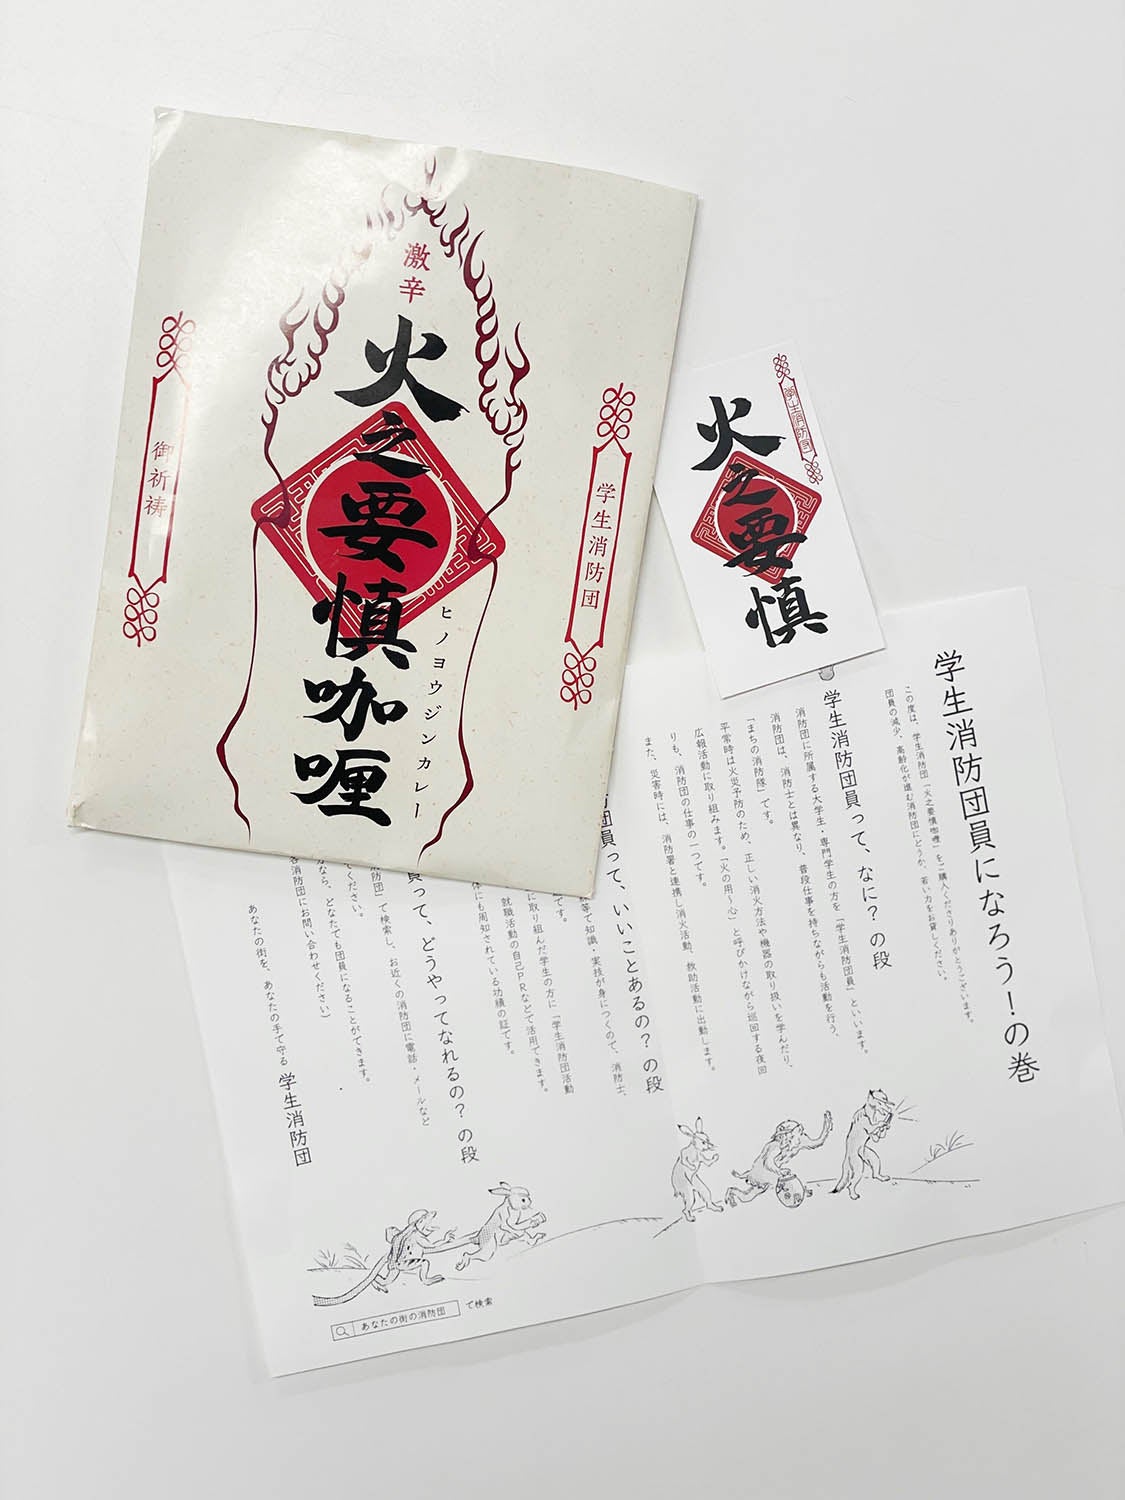 激辛
火之要慎咖喱
ヒノヨウジンカレー
御祈祷
学生消防団
学生消防団
火之要慎
学生消防団員になろう！の巻
この度は、学生消防団「火之要慎咖喱」をご購入くださりありがとうございます。
団員の減少、高齢化が進む消防団にどうか、若い力をお貸しください。
学生消防団員って、なに？の段
消防団に所属する大学生・専門学生の方を「学生消防団員」といいます。
消防団は、消防士とは異なり、普段仕事を持ちながらも活動を行う、
「まちの消防隊」です。
平常時は火災予防のため、正しい消火方法や機器の取り扱いを学んだり、
広報活動に取り組みます。「火の用〜心」と呼びかけながら巡回する夜回
りも、消防団の仕事の一つです。
また、災害時には、消防署と連携し消火活動、救助活動に出動します。
団員って、いいことあるの？の段
等で知識・実技が身につくので、消防士、
です。
に取り組んだ学生の方に「学生消防団活動
就職活動の自己PRなどで活用できます。
体にも周知されている功績の証です。
って、どうやってなれるの？の段
防団」で検索し、お近くの消防団に電話・メールなど
てください。
なら、どなたでも団員になることができます。
各消防団にお問い合わせください）
あなたの街を、あなたの手で守る 学生消防団
あなたの街の消防団 で検索